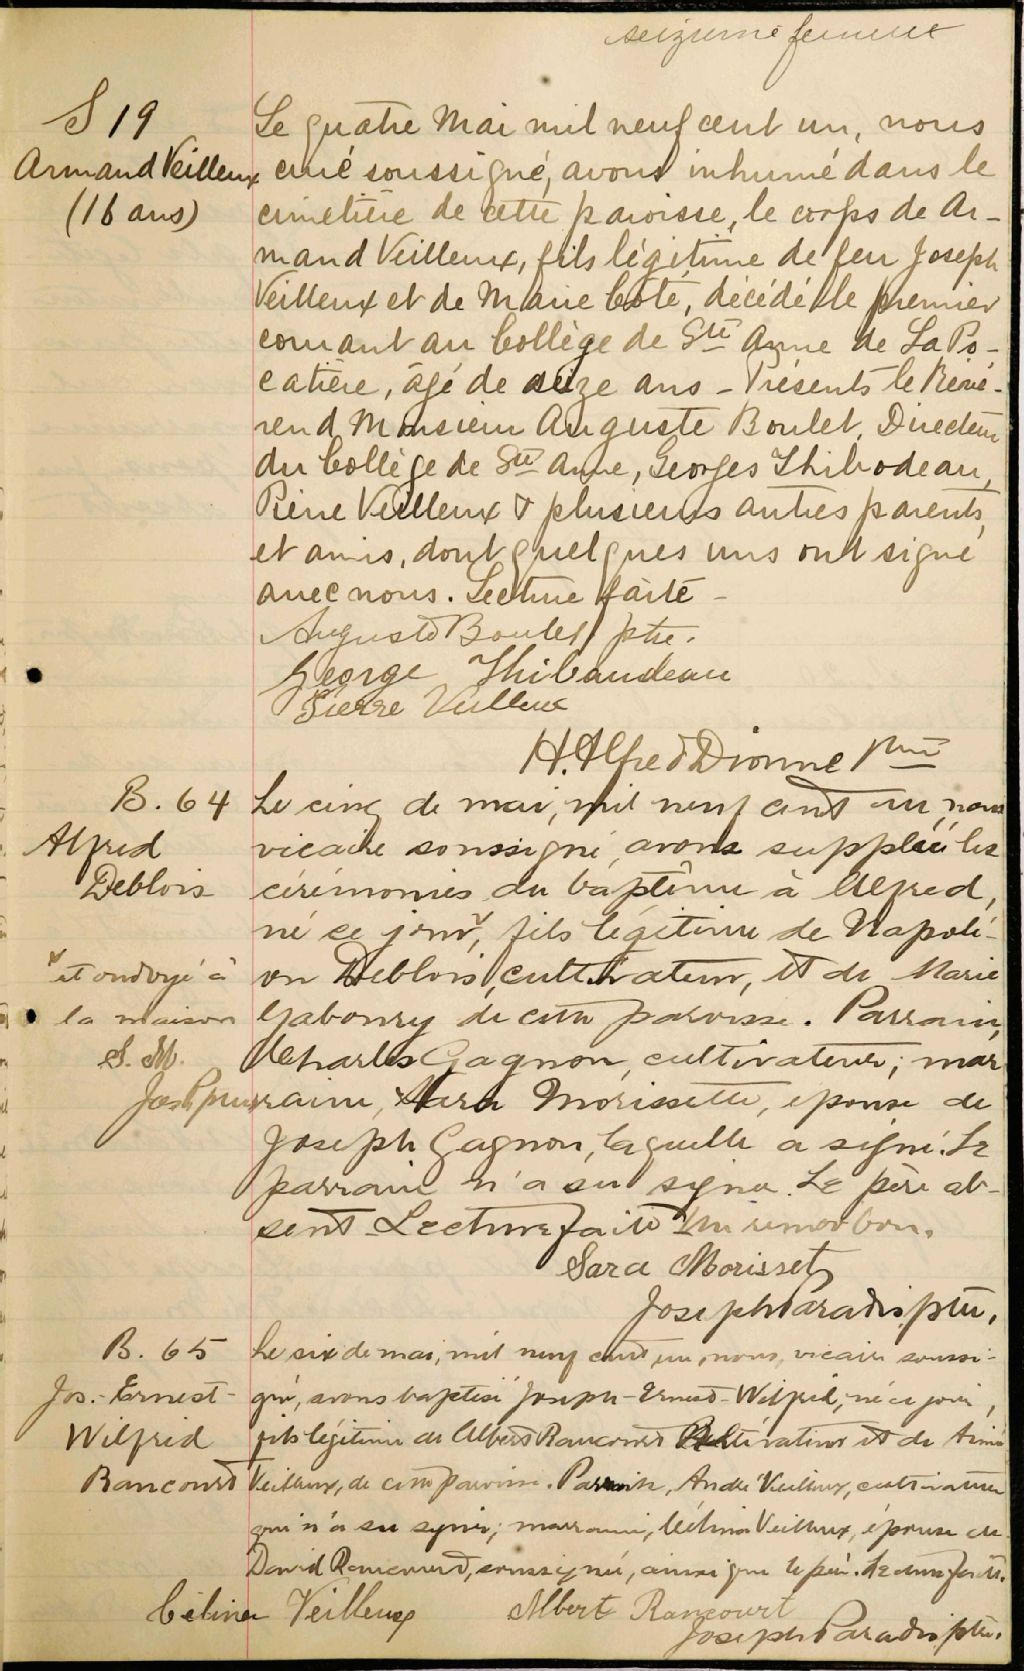 seizième feuillet
S 19
Armand Veilleux
(16 ans)
Le quatre Mai mil neuf cent un, nous
curé soussigné, avons inhumé dans le
cimetière de cette paroisse, le corps de Ar-
mand Veilleux, fils légitime de feu Joseph
Veilleux et de Marie Coté, décédé le premier
courant au Collège de Ste Anne de La Po-
catière, âgé de seize ans - Présents le Révé-
rend Monsieur Auguste Boulet, Directeur
du Collège de Ste Anne, Georges Thibodeau,
Pierre Veilleux & plusieurs autres parents
et amis, dont quelques uns ont signé
avec nous. Lecture faite -
Auguste Boulet ptre.
George Thibaudeau
Pierre Veilleux
H. Alfred Dionne Ptre
B. 64
Alfred
Deblois
v et ondoyé à
la maison
S. M.
Jos P ptre
Le cinq de mai, mil neuf cent un, nous
vicaire soussigné, avons suppléé les
cérémonies du baptême à Alfred,
né ce jour v, fils légitime de Napolé-
on Deblois, cultivateur, et de Marie
Gaboury de cette paroisse. Parrain,
Charles Gagnon, cultivateur; mar
raine, Sara Morissette, épouse de
Joseph Gagnon, laquelle a signé. Le
parrain n'a su signer. Le père ab-
sent Lecture faite Un renvoi bon.
Sara Morisset
Joseph Paradis, ptre.
B. 65
Jos.-Ernest-
Wilfrid
Rancourt
Le six de mai, mil neuf cent, un, nous, vicaire soussi-
gné, avons baptisé Joseph-Ernest-Wilfrid, né ce jour,
fils légitime de Albert Rancourt cultivateur et de
Veilleux, de cette paroisse. Parrain, André Veilleux, cultivateur
qui n'a su signer; marraine, Célina Veilleux, épouse de
David Rancourt, soussignée, ainsi que le père. Lecture faite.
Célina Veilleux Albert Rancourt
Joseph Paradis, ptre.